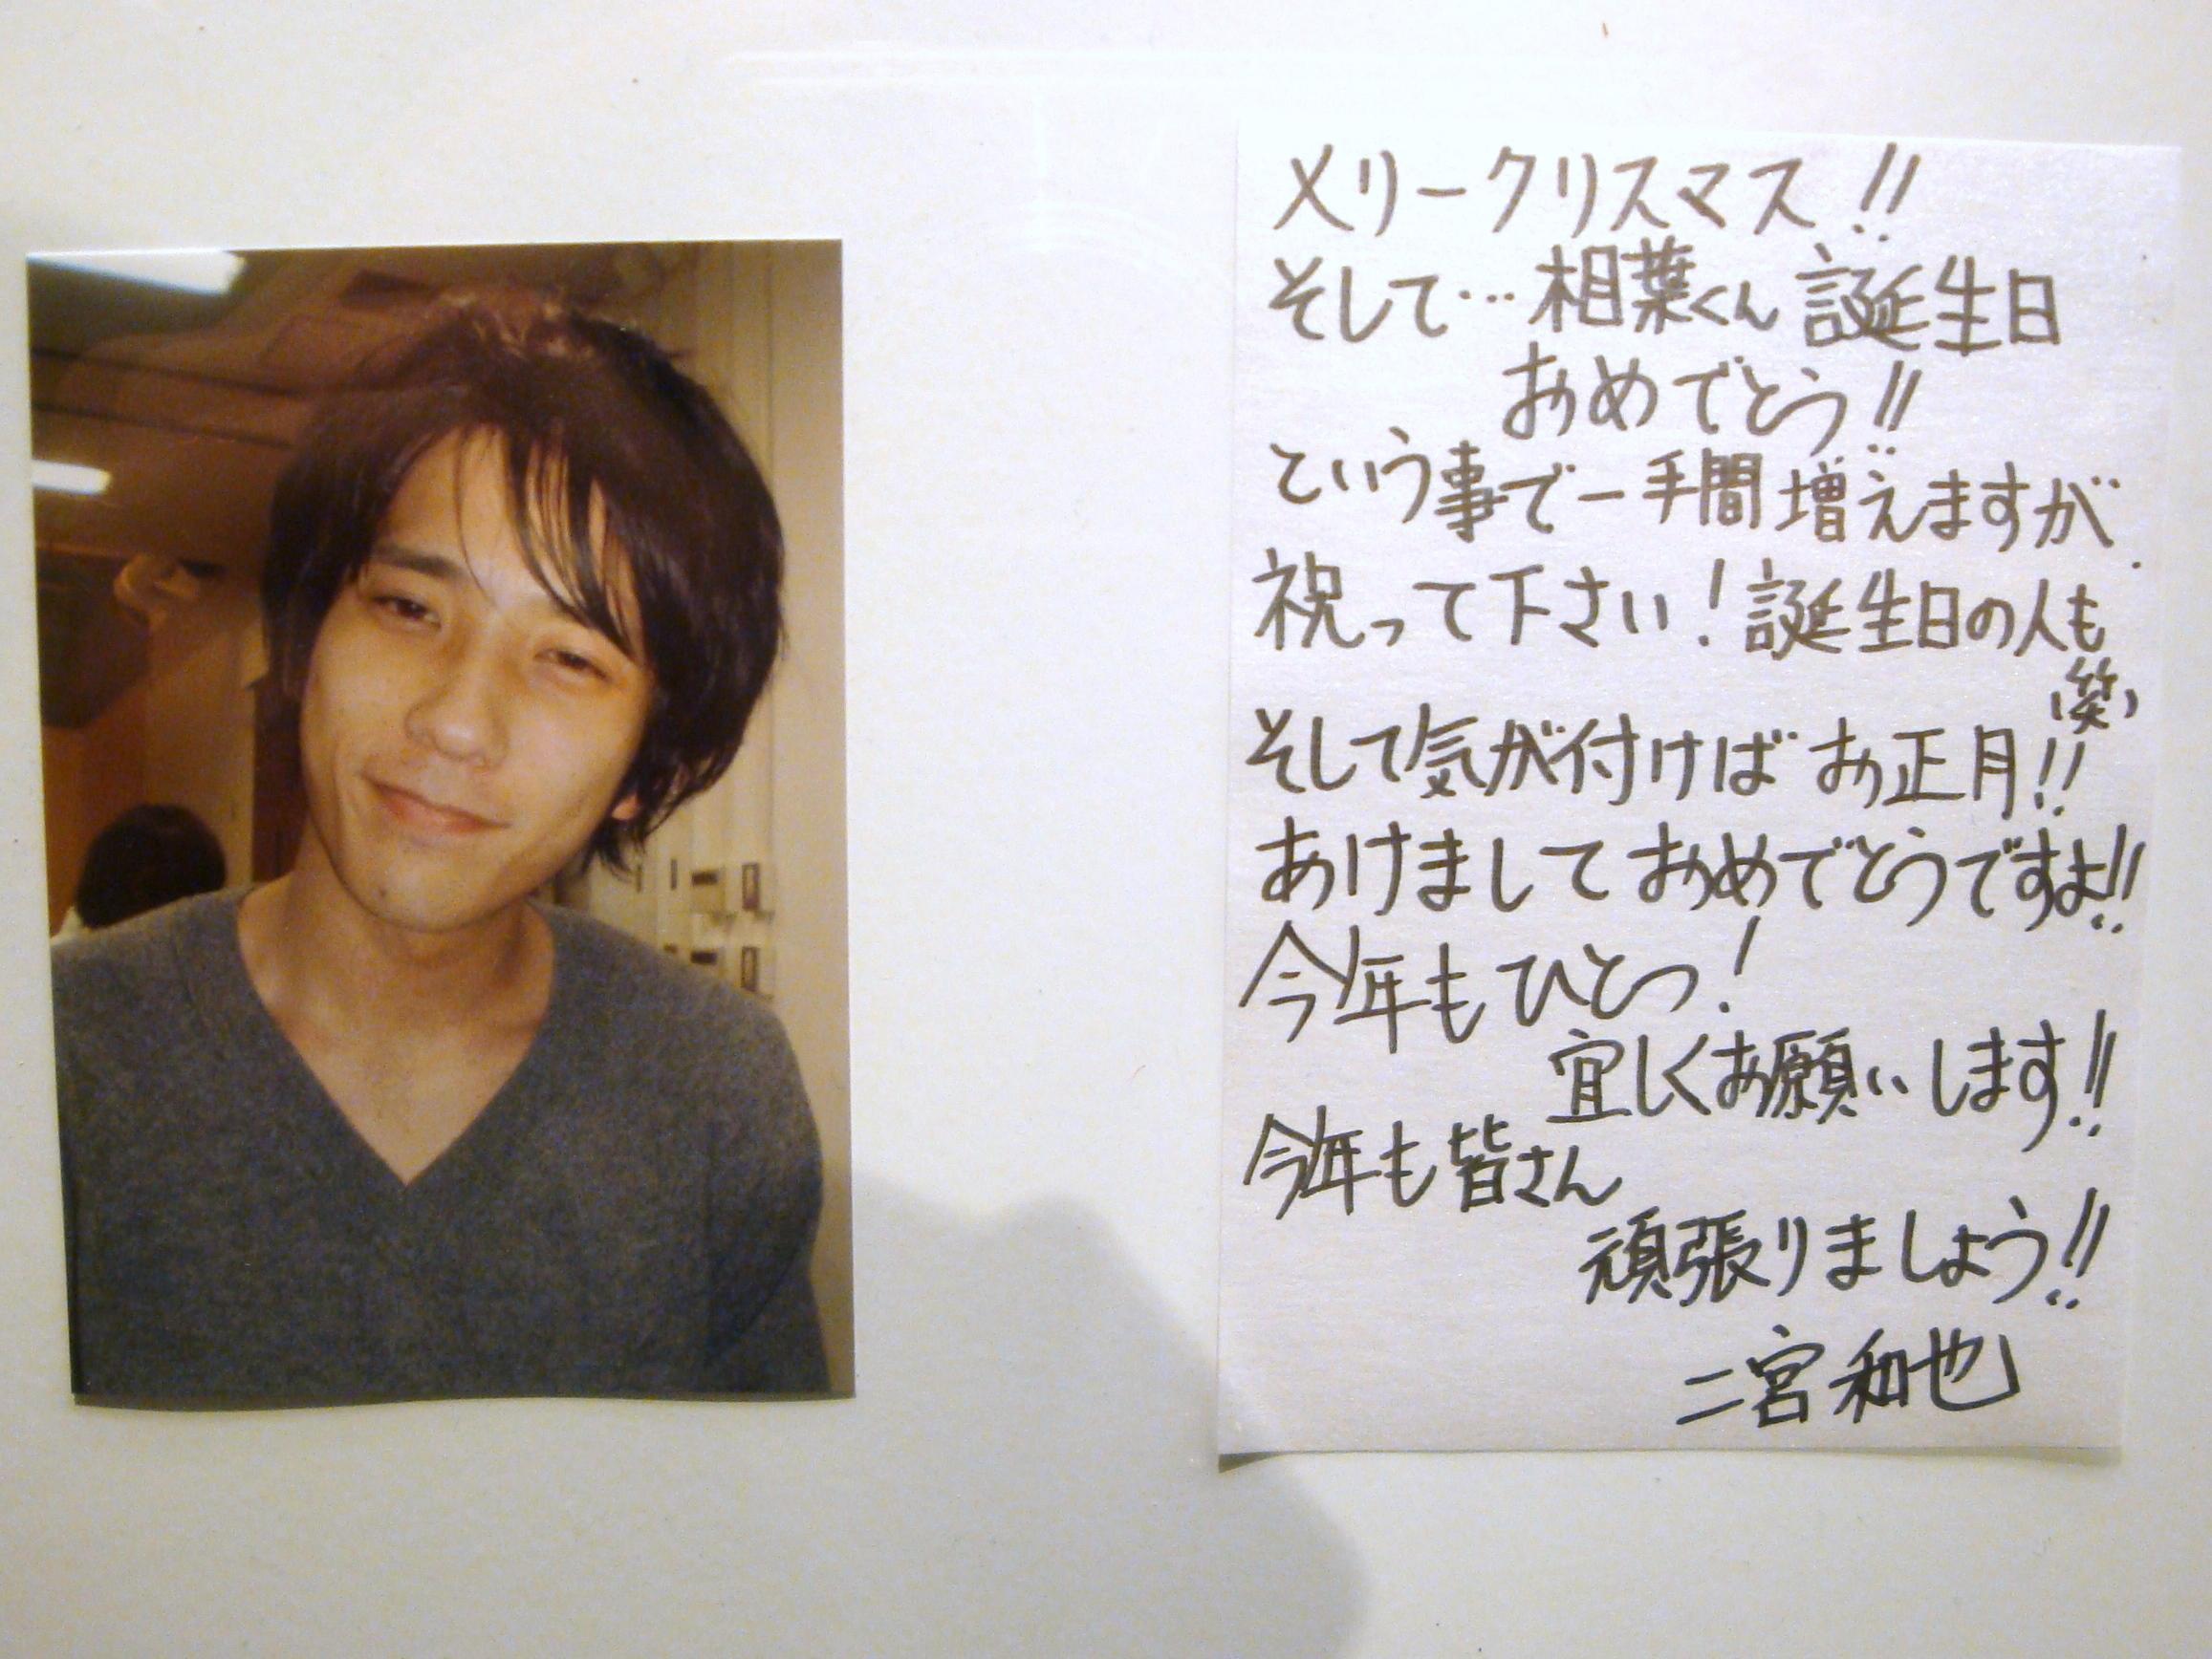 メリークリスマス!!
そして…相葉くん誕生日
おめでとう!!
という事で一手間増えますが、
祝って下さい!誕生日の人も
(笑)
そして気が付けばお正月!!
あけましておめでとうですよ!!
今年もひとつ!
宜しくお願いします!!
今年も皆さん
頑張りましょう!!
二宮和也